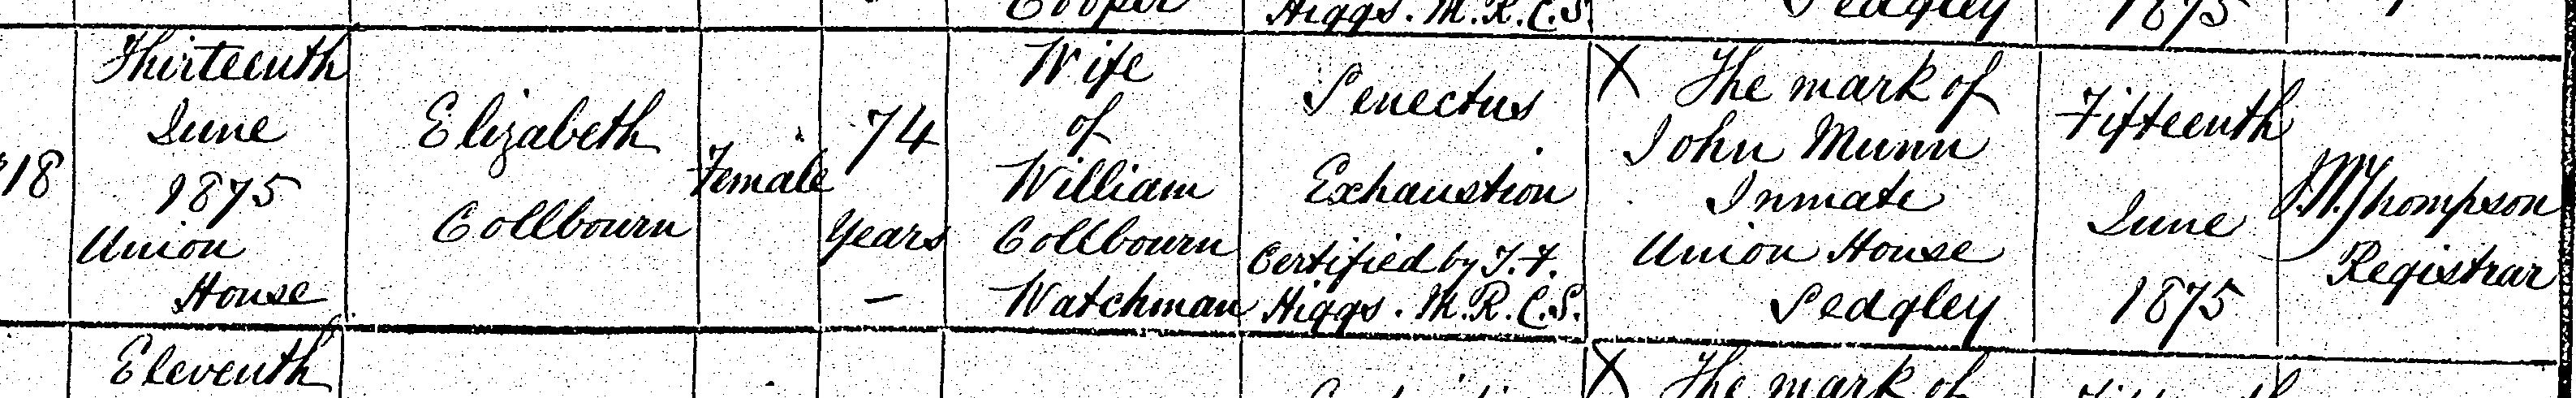 Cooper
Higgs. M.R.C.S.
Sedgley
1875
18
Thirteenth
June
1875
Union
House
Elizabeth
Collbourn
Female
74
Years
—
Wife
of
William
Collbourn
Watchman
Senectus
Exhaustion
Certified by T. F.
Higgs. M.R.C.S.
X The mark of
John Munn
Inmate
Union House
Sedgley
Fifteenth
June
1875
Thompson
Registrar
Eleventh
X The mark of